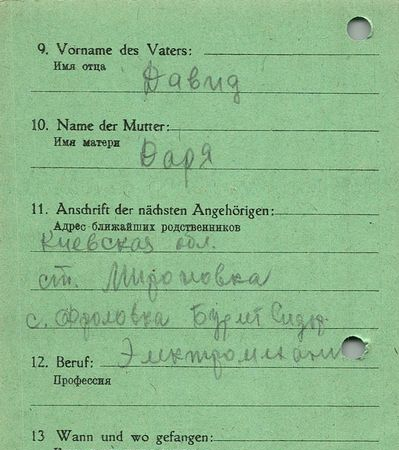 9. Vorname des Vaters:
Имя отца
Давид
10. Name der Mutter:
Имя матери
Даря
11. Anschrift der nächsten Angehörigen:
Адрес ближайших родственников
Киевская обл.
ст. Мироновка
с. Фроловка
12. Beruf: Электромехани
Профессия
13 Wann und wo gefangen: